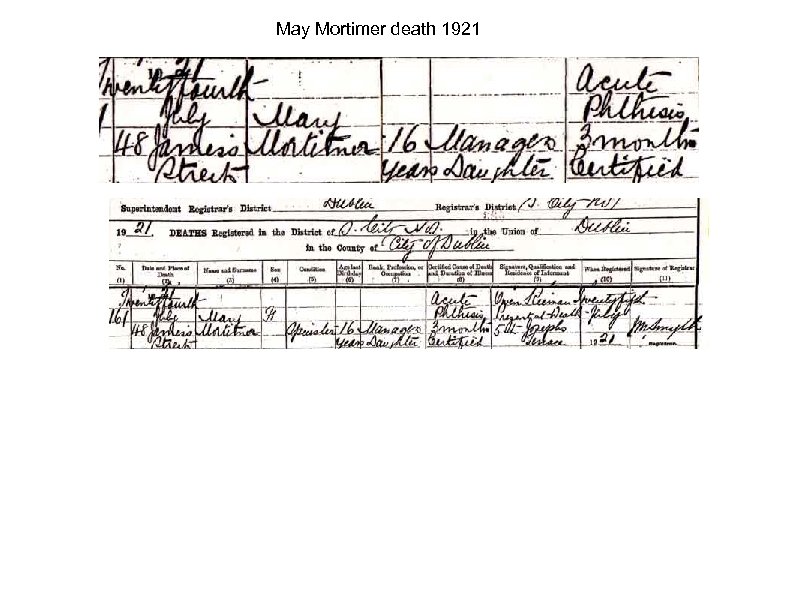 May Mortimer death 1921
Twenty fourth Acute
July Mary Phthisis
48 James's Mortimer 16 Manager's 3 months
Street Years Daughter Certified
Superintendent Registrar's District Dublin Registrar's District S. City No 1
19 21. DEATHS Registered in the District of S. City No in the Union of Dublin
in the County of City of Dublin
No. Date and Place of Death Name and Surname Sex Condition Age last Birthday Rank, Profession, or Occupation Certified Cause of Death and Duration of Illness Signature, Qualification and Residence of Informant When Registered Signature of Registrar
(1) (2) (3) (4) (5) (6) (7) (8) (9) (10) (11)
Twenty fourth Acute Owen Twenty fifth
161 July Mary F Phthisis Present at Death July
48 James's Mortimer Spinster 16 Manager's 3 months Josephs McSmyth
Street Years Daughter Certified Terrace 19 21 Registrar.